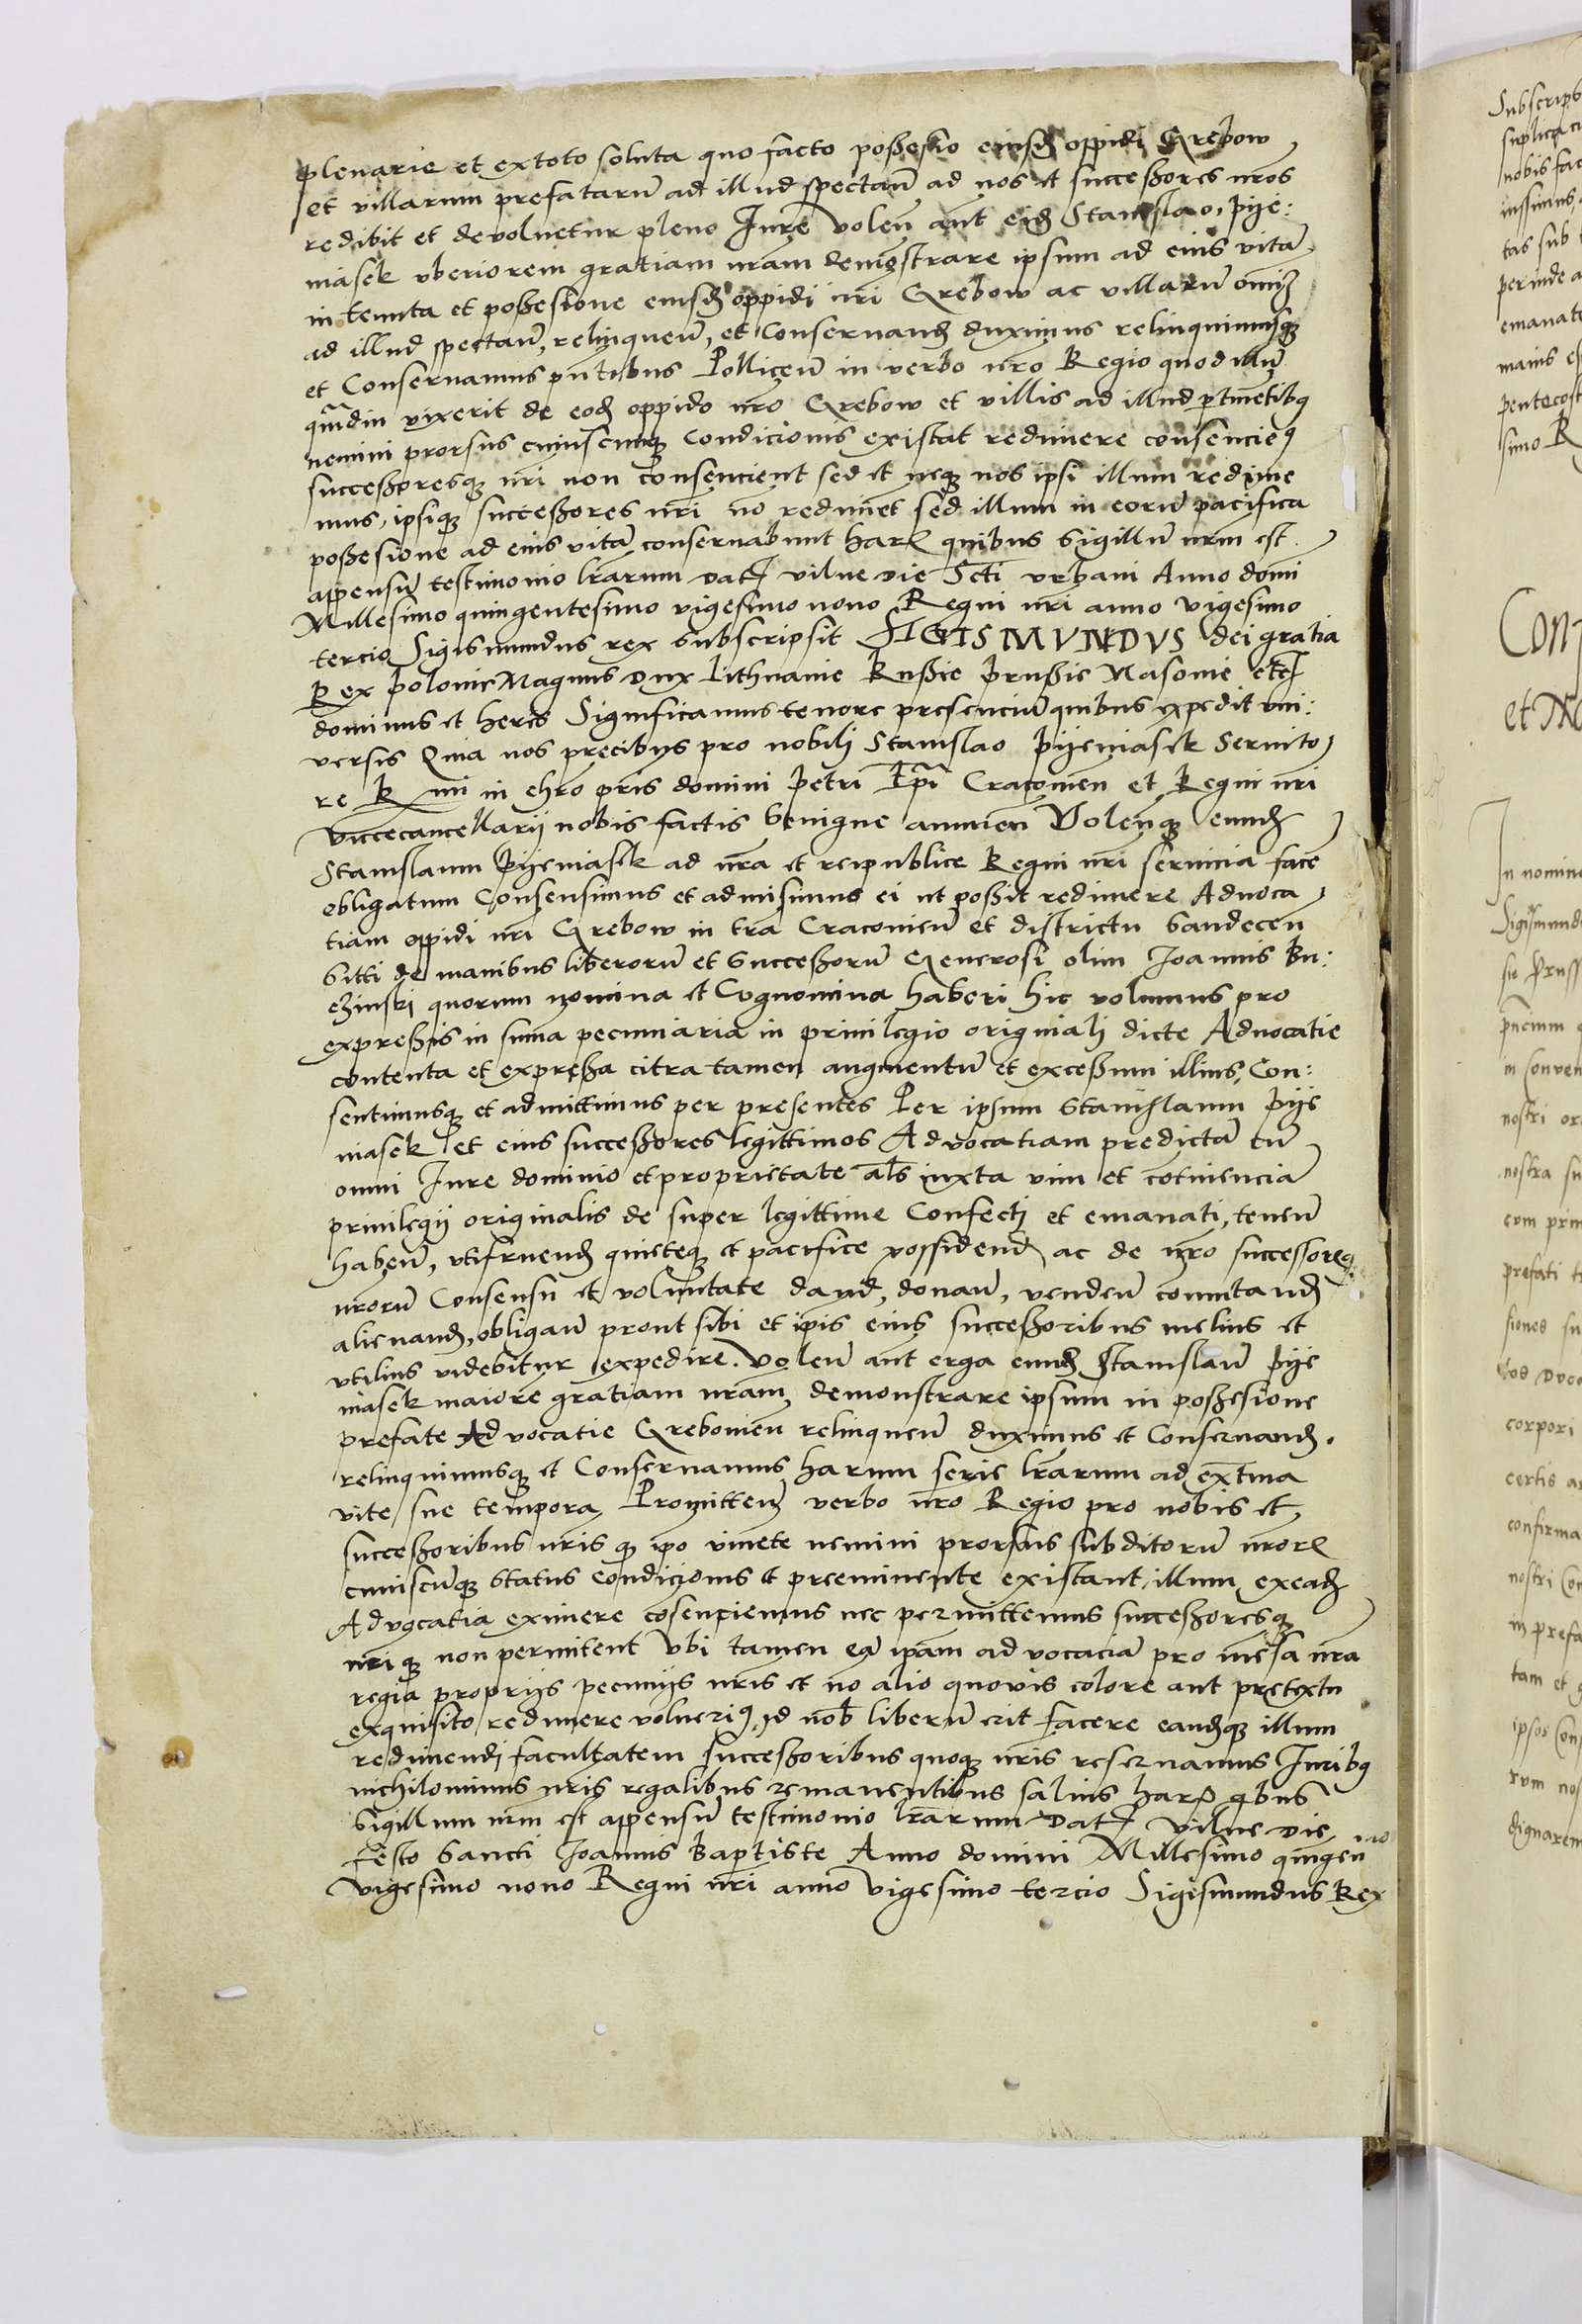 plenarie et extoto soluta quo facto poßeßio eiusd oppidi Grebow
et villarum prefatarū ad illud spectan̄ ad nos et succeßores nr̄os
redibit et devoluetur pleno Jure volen̄ aut̄ eid Stanislao, pije:
niasek vberiorem gratiam nr̄am demōstrare ipsum ad eius vitā
in tenuta et poßesione eiusd oppidi nr̄i Grebow ac villarū om̄iū
ad illud spectan̄, relinquen̄, et Conseruand duximus relinquimusq
et Conseruamus pn̄tibus Pollicen̄ in verbo nr̄o Regio quod illū
quādiu vixerit de eod oppido nr̄o Grebow et villis ad illud ptinētibꝰ
nemini prorsus cuiuscunq condicionis existat redimere consenciemꝰ
succeßoresq nr̄i non consencient sed et neq nos ipsi illum redime
mus, ipsiq succeßores nr̄i nō redimēt sed illum in eorū pacifica
poßesione ad eius vitā conseruabunt harꝝ quibus Sigillū nrm̄ est
appensū testimonio lr̄arum Dat̄ vilne die Scti vrbani Anno domi
Millesimo quingentesimo vigesimo nono Regni nr̄i anno vigesimo
tercio Sigismundus rex subscripsit SIGISMVNDVS dei gratia
Rex polonie Magnus dux Lithuanie Rußie prußie Masouie etc̄
dominus et heres Significamus tenore presenciū quibus expedit vni:
versis Quia nos precibus pro nobili Stanislao pijeniasek Seruito
re R mi in chr̄o pris domini petri Ep̄i Cracouien̄ et Regni nr̄i
vicecancellarij nobis factis benigne annuen̄ Volenq eund
Stanislaum pijeniasek ad nr̄a et reipublice Regni nr̄i seruicia facē
obligatum Consensimus et admisimus ei ut poßit redimere Aduoca
tiam oppidi nr̄i Grebow in tr̄a Cracouien̄ et districtu Sandecen̄
Sitti de manibus liberorū et Succeßorū Generosi olim Joannis Bu:
czinski quorum nomina et Cognomina haberi hic volumus pro
expreßis in suma pecuniaria in priuilegio originali dicte Aduocatie
contenta et expreßa citra tamen augmentū et exceßum illius, Con:
sentimusq et admittimus per presentes Per ipsum Stanislaum pije
niasek et eius succeßores legittimos Advocatiam predictā cū
omni Jure dominio et proprietate als̄ iuxta vim et cōtinenciā
priuilegij originalis de super legittime Confecti et emanati, tenen̄
haben̄, vtifruend quieteq et pacifice possidend ac de nr̄o successoreq
nr̄orū Consensu et voluntate dand, donan̄, venden̄ cōmutand
alienand, obligan̄ prout sibi et ipis eius succeßoribus melius et
vtilius videbitur expedire. Volen̄ aut̄ erga eund Stanislaū pije
niasek maiorē gratiam nr̄am demonstrare ipsum in poßesione
prefate Advocatie Grebouien̄ relinquen̄ duximus et Conseruand.
relinquimusq et Conseruamus harum serie lr̄arum ad extīma
vite sue tempora, Promitten̄ verbo nr̄o Regio pro nobis et
succeßoribus nr̄is q ipo viuēte nemini prorsus subditorū nr̄orꝝ
cuiuscūq status condicionis et preeminente existant, illum exead
Advocatia eximere cōsenciemus nec permittemus succeßoresq
nr̄i q non permitent vbi tamen eā ipam advocaciā pro mēsa nr̄a
regia proprijs pecunijs nr̄is et nō alio quovis colore aut pretextu
exquisito redimere voluerimꝰ, id nob̄ liberū erit facere eandq illum
redimendi facultatem succeßoribus quoq nr̄is reseruamus Juribꝰ
nichilominus nr̄is regalibus remanentibus saluis harꝝ qbus
Sigillum nrm̄ est appensū testimonio lr̄arum Dat̄ vilne die
festo Sancti Joannis Baptiste Anno domini Millesimo quingen mo
vigesimo nono Regni nr̄i anno vigesimo tercio Sigismundus Rex